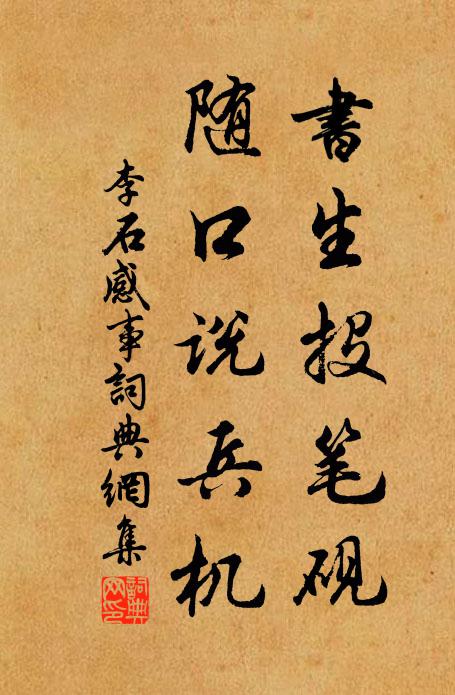 書生投笔硯
随口说兵机
李石感事詞典網集
詞典网印